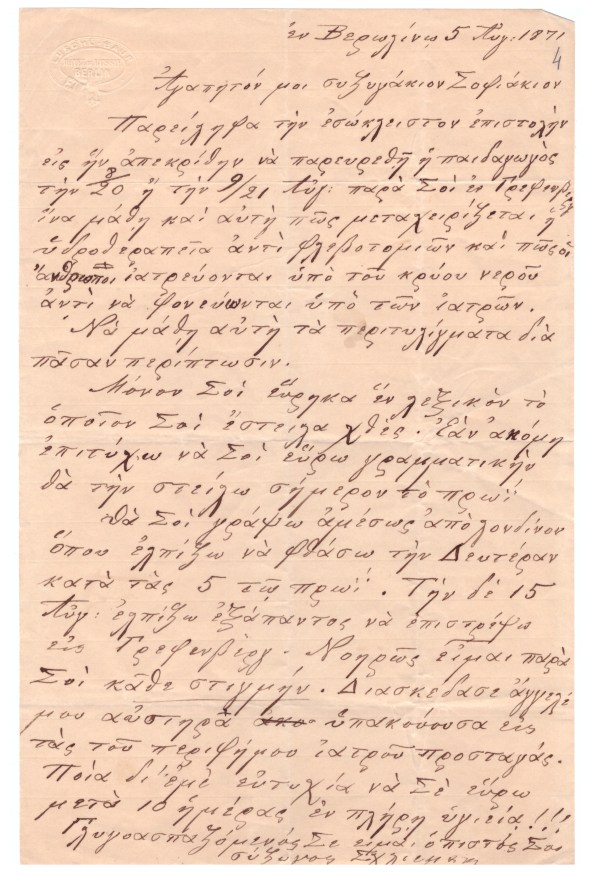 ἐν Βερωλίνῳ 5 Αὐγ: 1871
4
BERLIN
Ἀγαπητόν μοι συζυγάκιον Σοφιάκιον
Παρείληφα τὴν ἐσώκλειστον ἐπιστολὴν
εἰς ἣν ἀπεκρίθην νὰ παρευρεθῇ ἡ παιδαγωγὸς
τὴν 8/20 ἢ τὴν 9/21 Αὐγ: παρὰ Σοὶ ἐν Γρεφενβέργ
ἵνα μάθῃ καὶ αὐτὴ πῶς μεταχειρίζεται ἡ
ὑδροθεραπεία ἀντὶ φλεβοτομιῶν καὶ πῶς οἱ
ἄνθρωποι ἰατρεύονται ὑπὸ τοῦ κρύου νεροῦ
ἀντὶ νὰ φονεύωνται ὑπὸ τῶν ἰατρῶν.
Νὰ μάθῃ αὐτὴ τὰ περιτυλίγματα διὰ
πᾶσαν περίπτωσιν.
Μόνον Σοὶ εὕρηκα ἓν λεξικὸν τὸ
ὁποῖον Σοὶ ἔστειλα χθές. Ἐὰν ἀκόμη
ἐπιτύχω νὰ Σοὶ εὕρω γραμματικὴν
θὰ τὴν στείλω σήμερον τὸ πρωΐ
Θὰ Σοὶ γράψω ἀμέσως ἀπὸ Λονδίνον
ὅπου ἐλπίζω νὰ φθάσω τὴν Δευτέραν
κατὰ τὰς 5 τῷ πρωΐ. Τὴν δὲ 15
Αὐγ: ἐλπίζω ἐξάπαντος νὰ ἐπιστρέψω
εἰς Γρεφενβέργ. Νοηρῶς εἶμαι παρὰ
Σοὶ κάθε στιγμήν. Διασκέδασε ἄγγελέ
μου αὐστηρὰ ὑπακούουσα εἰς
τὰς τοῦ περιφήμου ἰατροῦ προσταγάς.
Ποία δι' ἐμὲ εὐτυχία νὰ Σὲ εὕρω
μετὰ 10 ἡμέρας ἐν πλήρῃ ὑγιείᾳ!!!
Γλυγοασπαζόμενός Σε εἶμαι ὁ πιστός Σοι
σύζυγος Σχλιεμαν